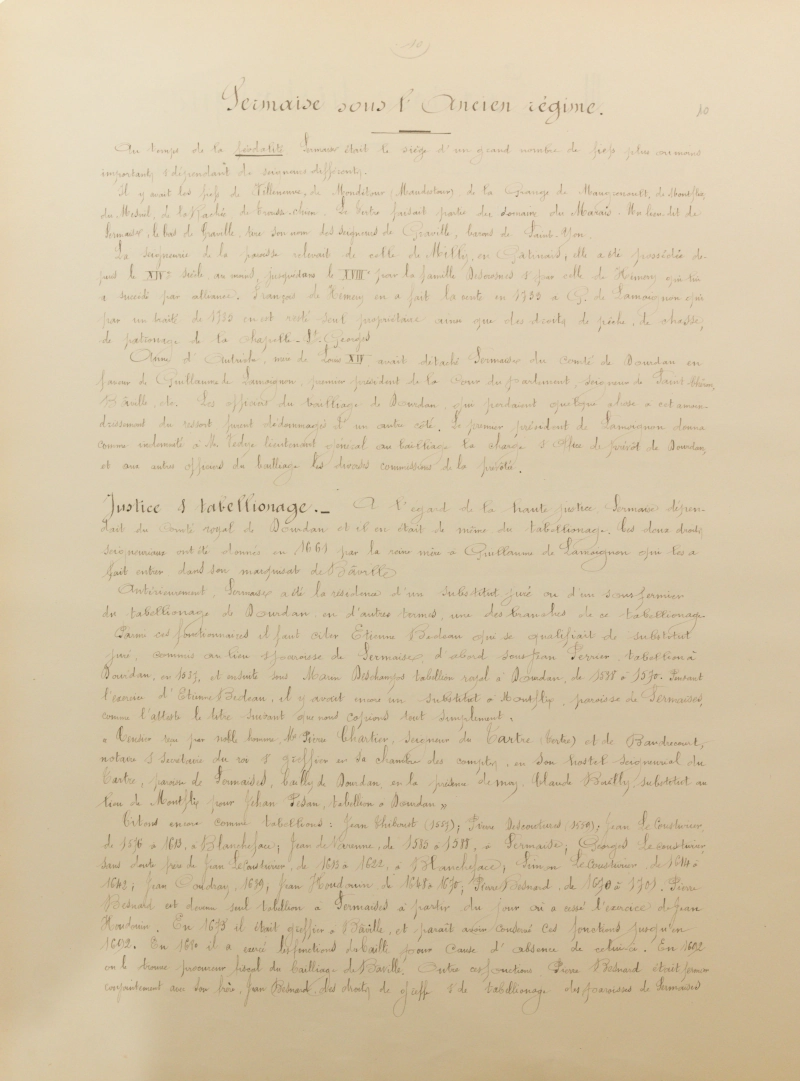 10
Sermaise sous l'Ancien régime.
10
Au temps de la féodalité Sermaise était le siège d'un grand nombre de fiefs plus ou moins
importants & dépendant de seigneurs différents.
Il y avait les fiefs de Villeneuve, de Mondétour (Maudétour), de la Grange de Maugrenoult, de Montflix,
du Mesnil, de la Rachée de trousse-chien. Le tertre faisait partie du domaine du Marais. Un lieu dit de
Sermaise, le bas de Graville, tire son nom des seigneurs de Graville, barons de Saint-Yon.
La seigneurie de la paroisse relevait de celle de Milly, en Gâtinais, elle a été possédée de-
puis le XIVe siècle au moins, jusque dans le XVIIIe par la famille & par celle de Hémery qui lui
a succédé par alliance. François de Hémery en a fait la vente en 1733 à G. de Lamoignon qui
par un traité de 1733 en est resté seul propriétaire ainsi que des droits de pêche, de chasse,
de patronage de la chapelle St Georges
Anne d'Autriche, mère de Louis XIV, avait détaché Sermaise du Comté de Dourdan en
faveur de Guillaume de Lamoignon, premier président de la Cour du parlement, seigneur de Saint Chéron,
Bâville, etc. Les officiers du bailliage de Dourdan, qui perdaient quelque chose à cet amoin-
drissement du ressort furent dédommagés d'un autre côté. Le premier président de Lamoignon donna
comme indemnité à Mr Védye lieutenant général au bailliage la charge & office de prévôt de Dourdan,
et aux autres officiers du bailliage les diverses commissions de la prévôté.
Justice & tabellionage. _ A l'égard de la haute justice, Sermaise dépen-
dait du Comté royal de Dourdan et il en était de même du tabellionage. Ces deux droits
seigneuriaux ont été donnés en 1661 par la reine mère à Guillaume de Lamoignon qui les a
fait entrer dans son marquisat de Bâville
Antérieurement, Sermaise a été la résidence d'un substitut juré ou d'un sous-fermier
du tabellionage de Dourdan, en d'autres termes, une des branches de ce tabellionage.
Parmi ces fonctionnaires il faut citer Etienne Bedeau qui se qualifiait de substitut
juré, commis au lieu & paroisse de Sermaises, d'abord sous Jean Ferrier, tabellion à
Dourdan, en et ensuite sous Marin Deschamps tabellion royal à Dourdan, de 1558 à 1570. Pendant
l'exercice d'Etienne Bedeau, il y avait encore un substitut à Montflix, paroisse de Sermaises,
comme l'atteste le titre suivant que nous copions tout simplement :
« passé par noble homme, Me Pierre Chartier, seigneur du Tartre (tertre) et de Baudrecourt,
notaire & secrétaire du roi & greffier en sa chambre des comptes, en son hostel seigneurial du
Tartre, paroisse de Sermaises, bailly de Dourdan, en la présence de moy, Claude Bailly, substitut au
lieu de Montflix pour Jehan Pesan, tabellion à Dourdan »
Citons encore comme tabellions : Jean Thibout ; Pierre Descourtures ; Jean Le Cousturier,
de 1576 à 1613, à Blancheface ; Jean de Varenne, de 1585 à 1588, à Sermaise ; Georges Le Cousturier,
sans doute fils de Jean Le Cousturier, de 1613 à 1622, à Blancheface ; Simon Le Cousturier de 1614 à
1641 ; Jean Coudray, 1639 ; Jean Houdouin de 1648 à 1670 ; Pierre Besnard, de 1670 à 1701. Pierre
Besnard est devenu seul tabellion à Sermaises à partir du jour où a cessé l'exercice de Jean
Houdouin. En 1675 il était greffier à Bâville, et paraît avoir conservé ces fonctions jusqu'en
1692. En il a exercé les fonctions de bailli pour cause d'absence de celui-ci. En 1692
on le trouve procureur fiscal du bailliage de Bâville. Outre ces fonctions Pierre Besnard était fermier
conjointement avec son frère, Jean Besnard, des droits de greffe & de tabellionage des paroisses de Sermaises